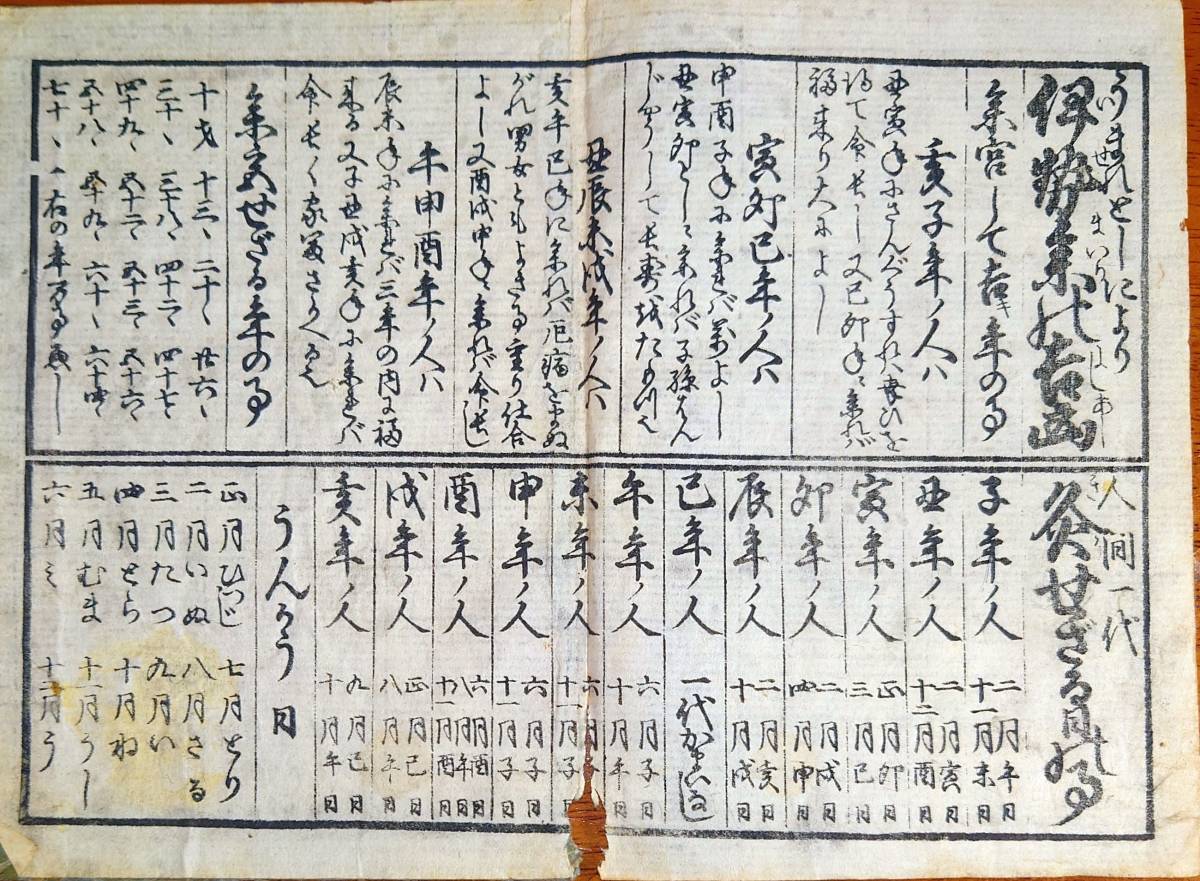 うまれどしにより
伊勢参の吉凶
参宮して吉年の事
亥子年ノ人ハ
丑寅年にさんぐうすれバ幸ひを
得て命長し又巳卯年ニ参れバ
福来り大によし
寅卯巳年ノ人ハ
申酉子年に参れバ万よし
丑寅卯としニ参れバ子孫はん
じやうして長寿をたもつべし
丑辰未戌年ノ人ハ
亥午巳年に参れバ厄病をまぬ
がれ男女ともよき事重り仕合
よし又酉戌申年ニ参れバ命長し
午申酉年ノ人ハ
辰未年に参れバ三年の内に福
来る又子丑戌亥年に参れバ
命長く家富さかへる也
参宮せざる年の事
十才 十三〻 二十〻 廿六〻
三十〻 三十八〻 四十二〻 四十七〻
四十九〻 五十二〻 五十三〻 五十六〻
五十八〻 五十九〻 六十〻 六十四〻
七十〻 右の年
人間一代
灸せざる月日の事
子年ノ人 二月午日 十一月未日
丑年ノ人 二月寅日 十二月酉日
寅年ノ人 正月卯日 三月巳日
卯年ノ人 二月戌日 四月申日
辰年ノ人 二月亥日 十月戌日
巳年ノ人 一代かまひなし
午年ノ人 六月子日 十月午日
未年ノ人 六月子日 十一月子日
申年ノ人 六月子日 十一月子日
酉年ノ人 六月酉日 八月午日 十一月酉日
戌年ノ人 正月巳日 八月午日
亥年ノ人 九月巳日 十月午日
うんかう日
正月ひつじ 七月とり
二月いぬ 八月さる
三月たつ 九月い
四月とら 十月ね
五月むま 十一月うし
六月ミ 十二月う